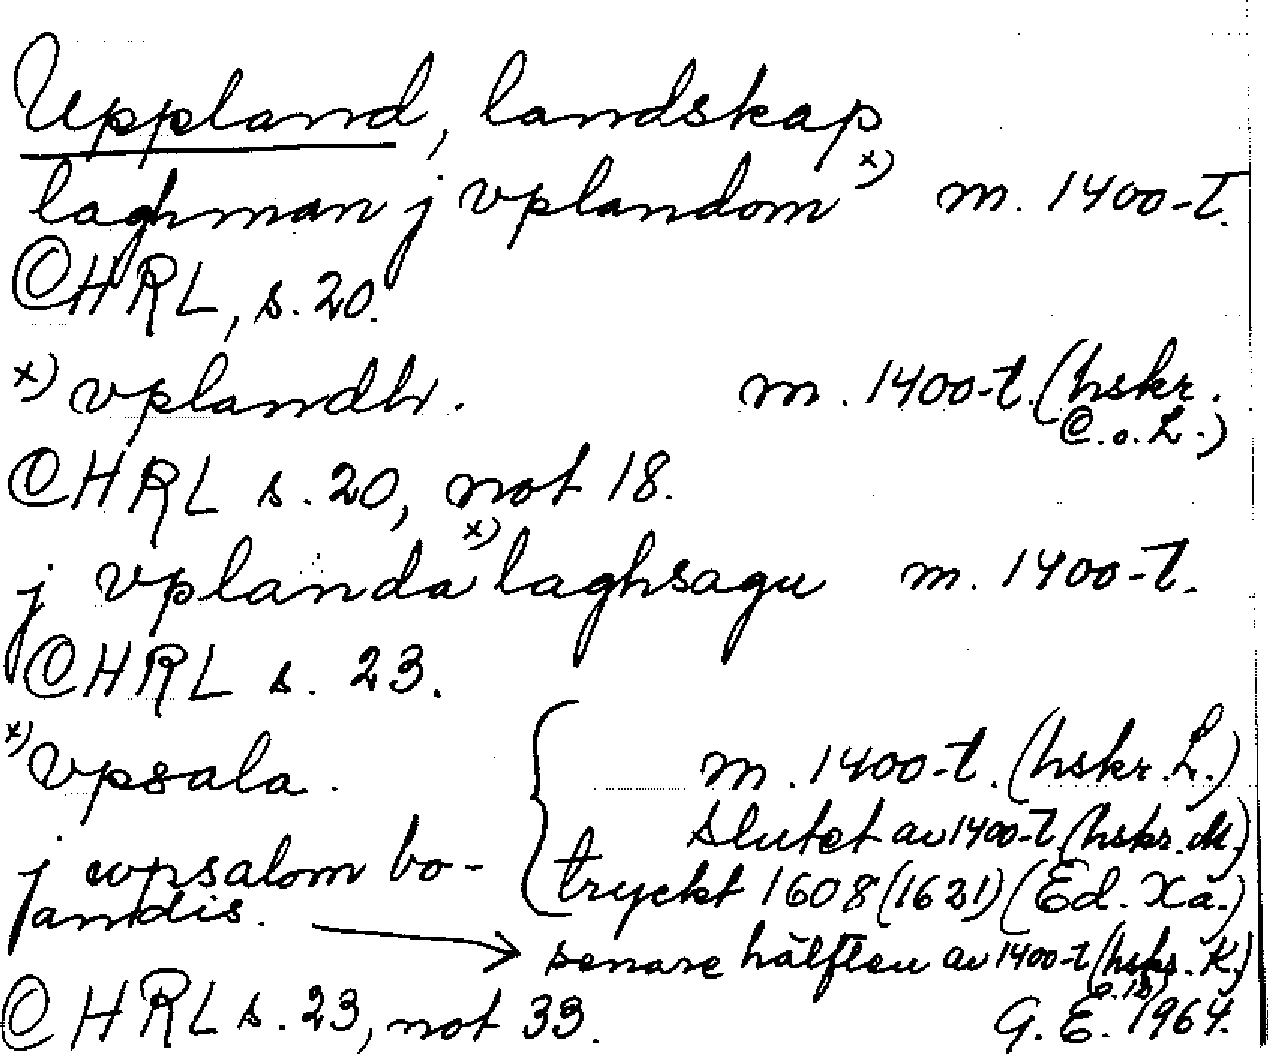 Uppland, landskap
laghman j vplandom x) m. 1400-t.
CHRL, s. 20.
x) vplandh. m. 1400-t. (hskr.
C. o. L.)
CHRL s. 20, not 18.
j vplanda x) laghsagu m. 1400-t.
CHRL s. 23.
x) Vpsala. m. 1400-t. (hskr. L.)
slutet av 1400-t (hskr. M)
j wpsalom bo-
andis.
tryckt 1608 (1621) (Ed. Xa.)
senare hälften av 1400-t (hskr. K)
CHRL s. 23, not 33.
G. E. 1964.